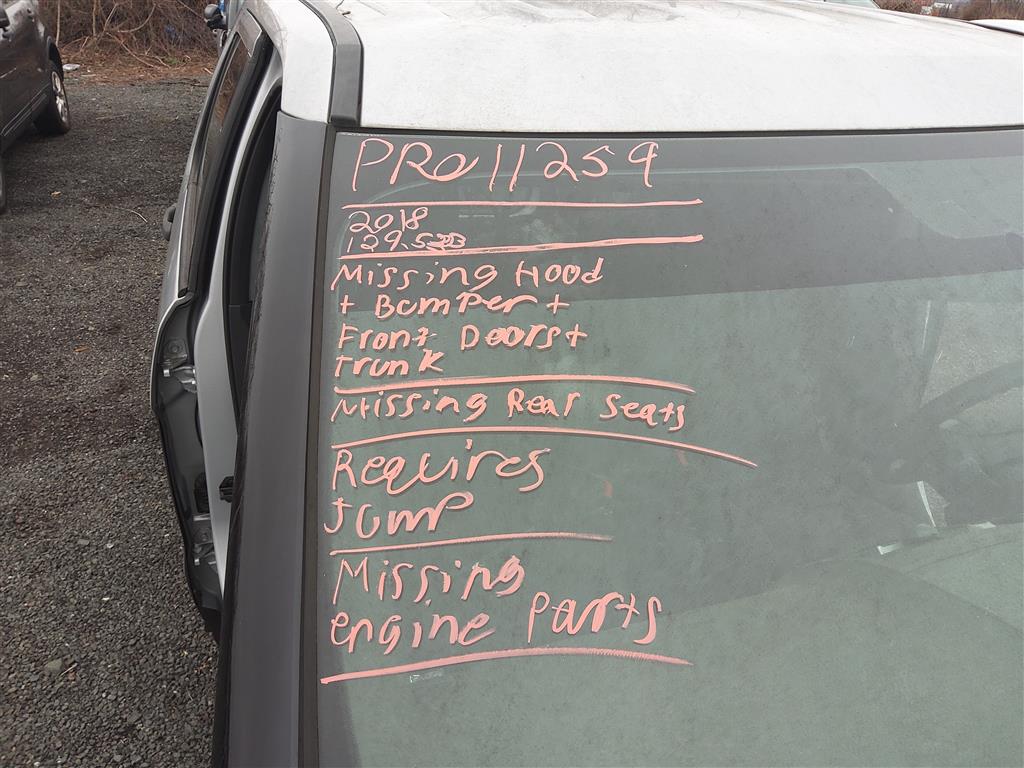 PRO11259
2018
129.523
Missing Hood
+ Bumper +
Front Doors +
trunk
Missing Rear seats
Requires
Jump
Missing
engine parts